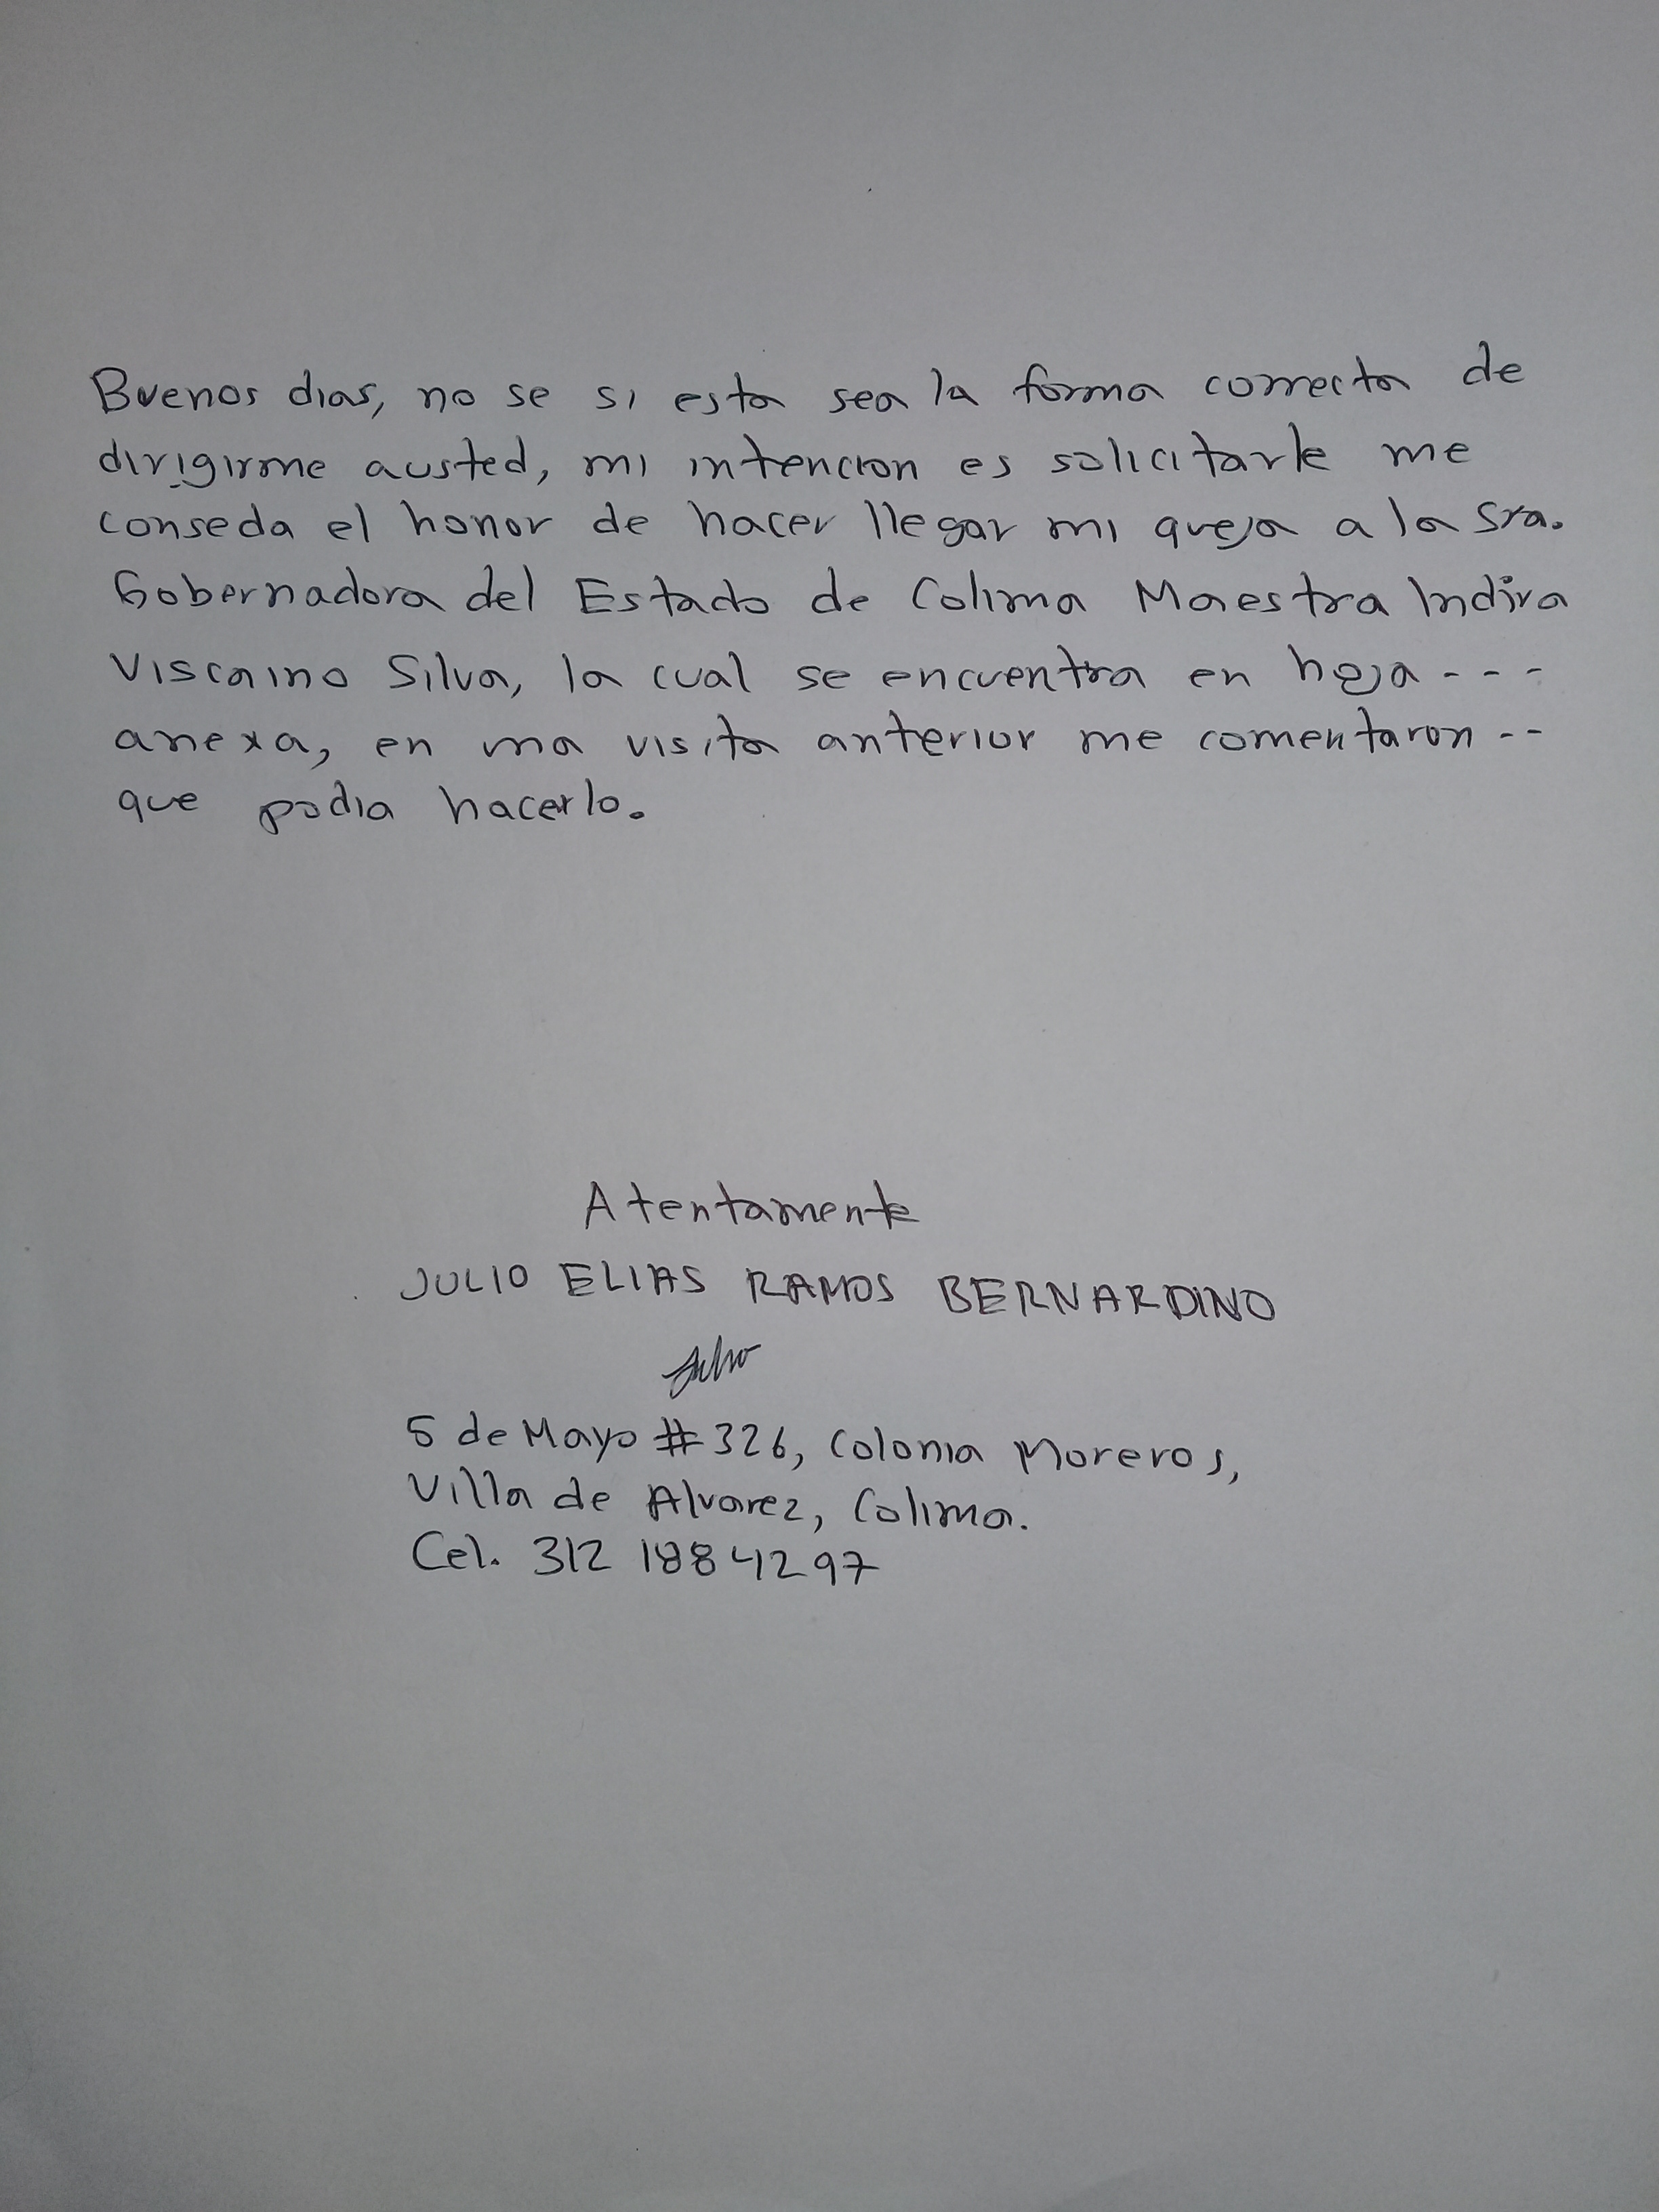 Buenos dias, no se si esta sea la forma correcta de
dirigirme austed, mi intencion es solicitarle me
conseda el honor de hacer llegar mi queja a la Sra.
Gobernadora del Estado de Colima Maestra Indira
Viscaino Silva, la cual se encuentra en hoja - - -
anexa, en una visita anterior me comentaron - -
que podia hacerlo.
Atentamente
JULIO ELIAS RAMOS BERNARDINO
Julio
5 de Mayo # 326, Colonia Moreros,
Villa de Alvarez, Colima.
Cel. 312 1884297